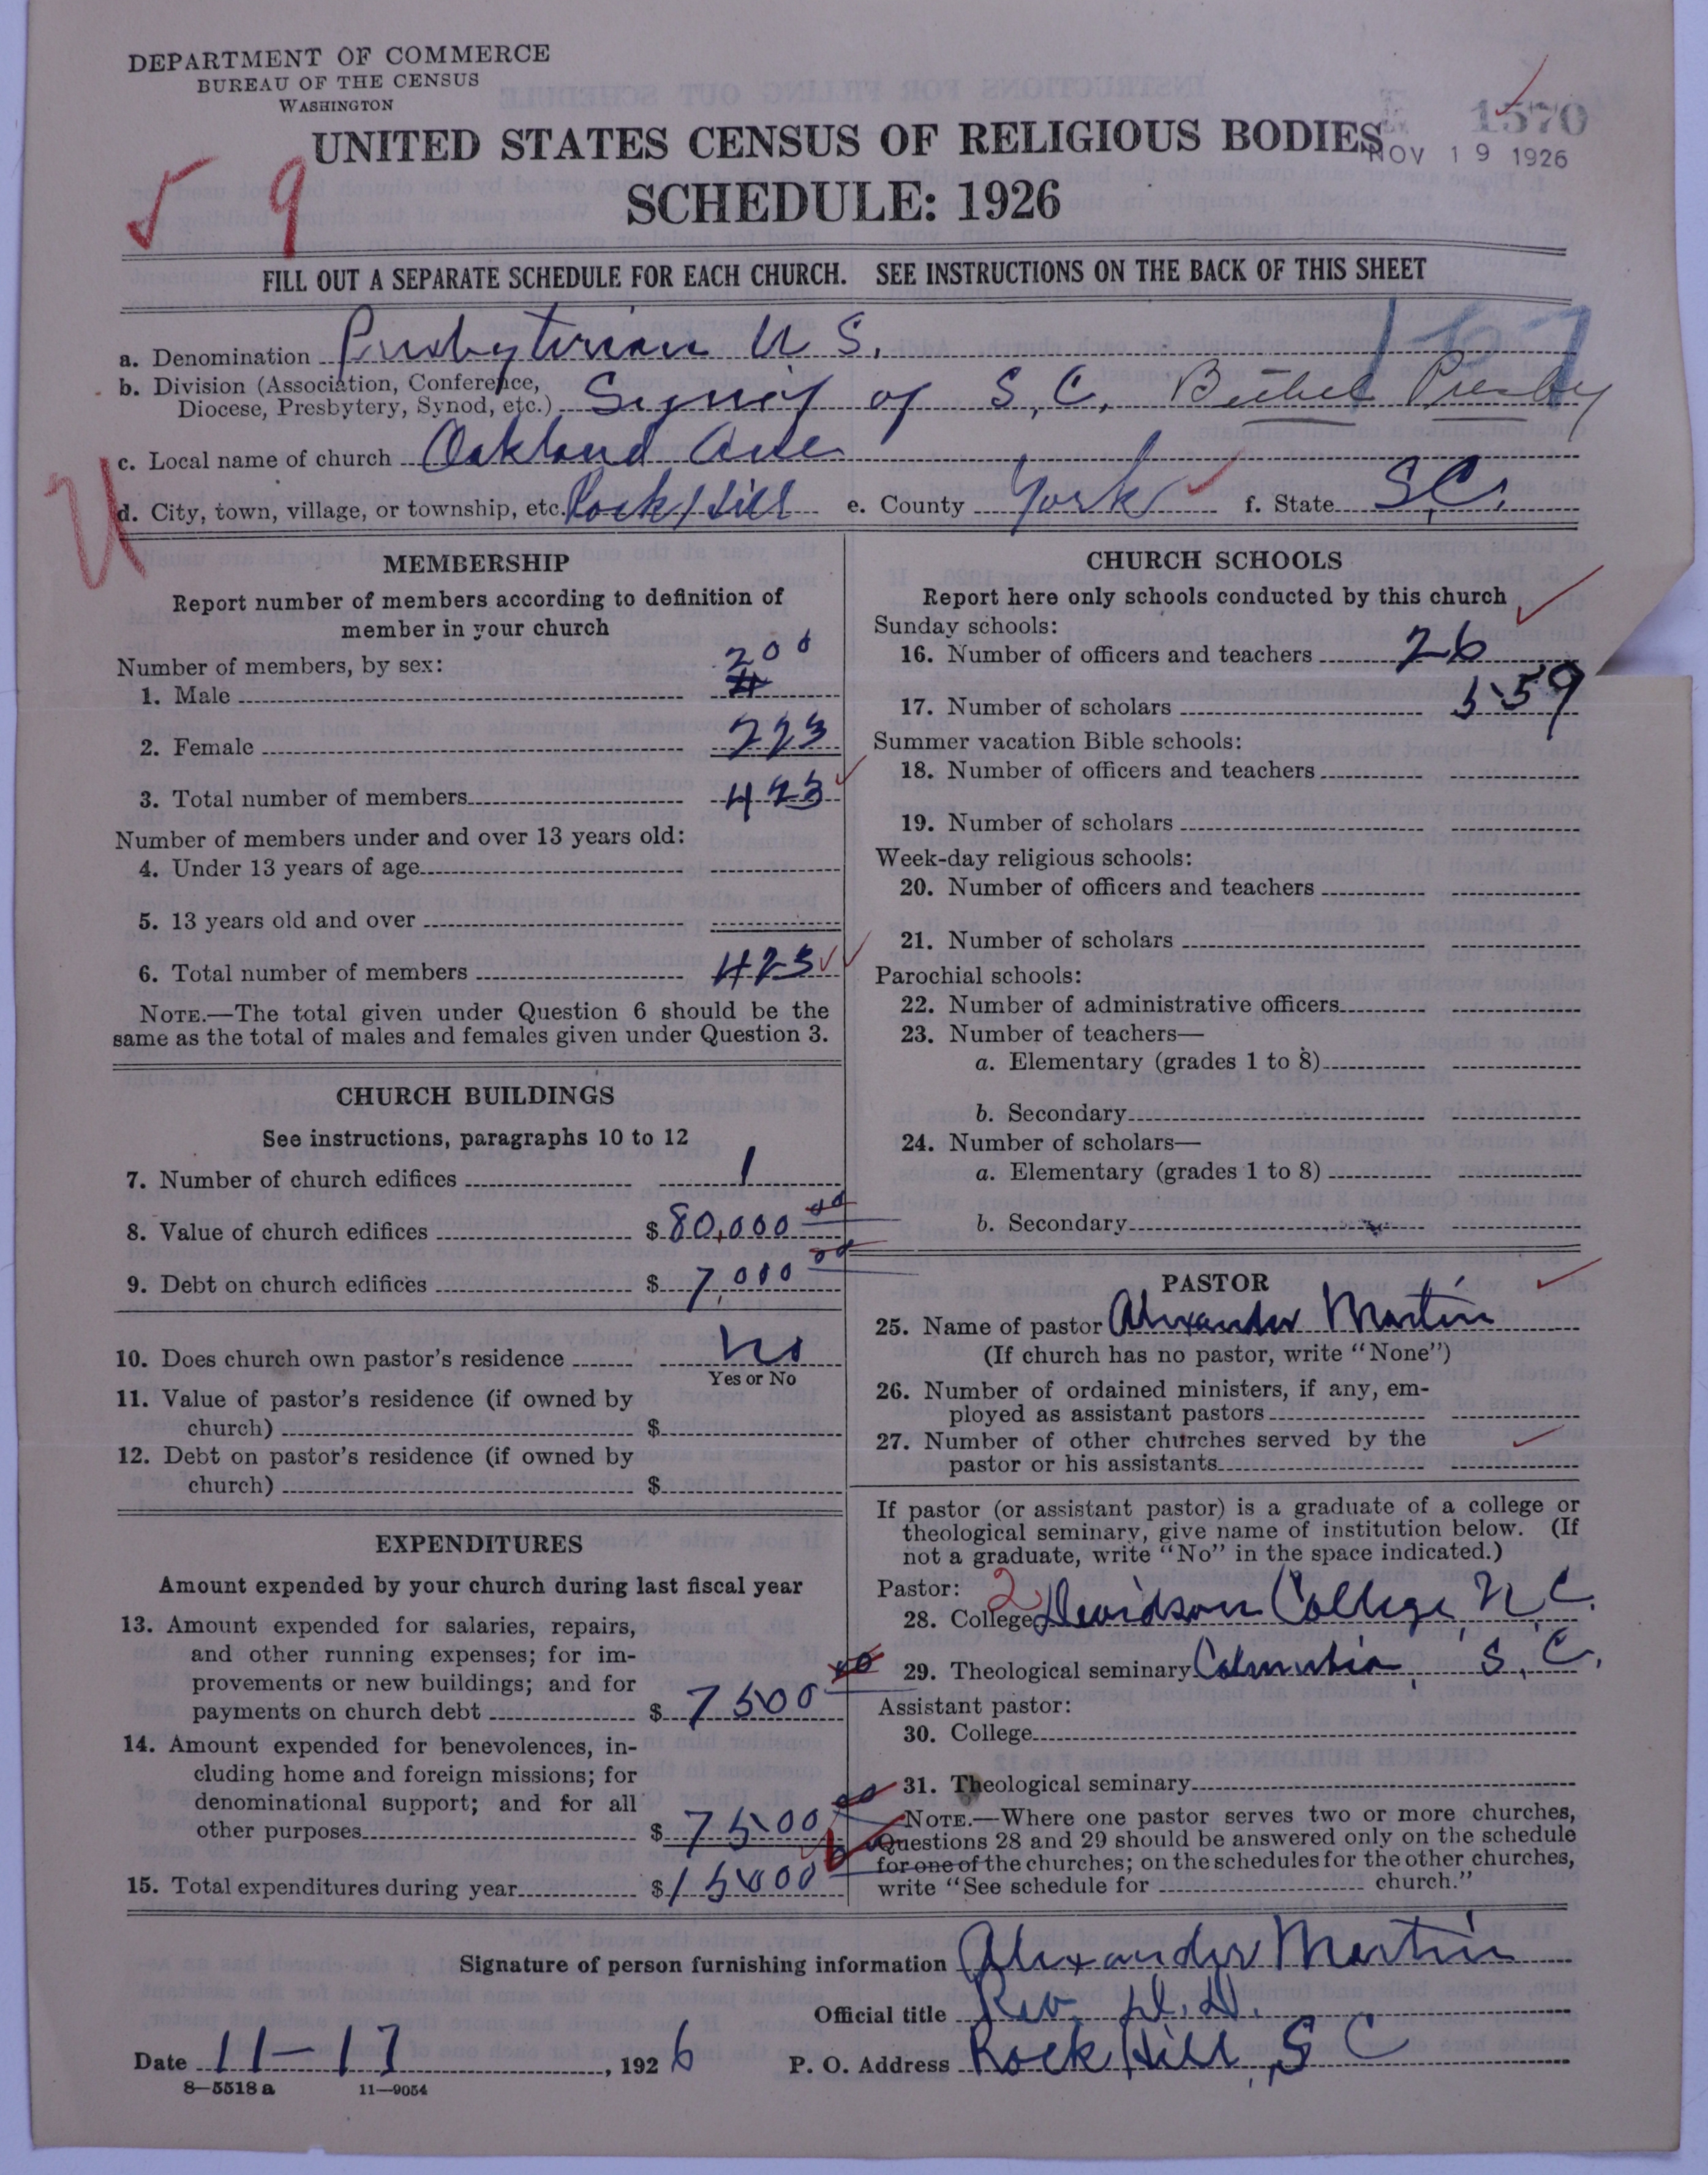 DEPARTMENT OF COMMERCE
BUREAU OF THE CENSUS
WASHINGTON
1570
NOV 19 1926
UNITED STATES CENSUS OF RELIGIOUS BODIES
SCHEDULE: 1926
9
FILL OUT A SEPARATE SCHEDULE FOR EACH CHURCH. SEE INSTRUCTIONS ON THE BACK OF THIS SHEET
a. Denomination Presbyterian U S.
b. Division (Association, Conference,
Diocese, Presbytery, Synod, etc.) Synod of S, C, Bethel Presby
c. Local name of church Oakland Ave
d. City, town, village, or township, etc. Rock Hill e. County York f. State S.C.
MEMBERSHIP
Report number of members according to definition of
member in your church
Number of members, by sex:
1. Male 200
2. Female 223
3. Total number of members 423
Number of members under and over 13 years old:
4. Under 13 years of age
5. 13 years old and over
6. Total number of members 423
NOTE.—The total given under Question 6 should be the
same as the total of males and females given under Question 3.
CHURCH BUILDINGS
See instructions, paragraphs 10 to 12
7. Number of church edifices 1
8. Value of church edifices $ 80,000 00
9. Debt on church edifices $ 7,000 00
10. Does church own pastor's residence No
Yes or No
11. Value of pastor's residence (if owned by
church) $
12. Debt on pastor's residence (if owned by
church) $
EXPENDITURES
Amount expended by your church during last fiscal year
13. Amount expended for salaries, repairs,
and other running expenses; for im-
provements or new buildings; and for
payments on church debt $ 7500 00
14. Amount expended for benevolences, in-
cluding home and foreign missions; for
denominational support; and for all
other purposes $ 7500 00
15. Total expenditures during year $ 15000
CHURCH SCHOOLS
Report here only schools conducted by this church
Sunday schools:
16. Number of officers and teachers 26
17. Number of scholars 559
Summer vacation Bible schools:
18. Number of officers and teachers
19. Number of scholars
Week-day religious schools:
20. Number of officers and teachers
21. Number of scholars
Parochial schools:
22. Number of administrative officers
23. Number of teachers—
a. Elementary (grades 1 to 8)
b. Secondary
24. Number of scholars—
a. Elementary (grades 1 to 8)
b. Secondary
PASTOR
25. Name of pastor Alexander Martin
(If church has no pastor, write "None")
26. Number of ordained ministers, if any, em-
ployed as assistant pastors
27. Number of other churches served by the
pastor or his assistants
If pastor (or assistant pastor) is a graduate of a college or
theological seminary, give name of institution below. (If
not a graduate, write "No" in the space indicated.)
Pastor: 2
28. College Davidson College, N. C.
29. Theological seminary Columbia, S. C.
Assistant pastor:
30. College
31. Theological seminary
NOTE.—Where one pastor serves two or more churches,
Questions 28 and 29 should be answered only on the schedule
for one of the churches; on the schedules for the other churches,
write "See schedule for church."
Signature of person furnishing information Alexander Martin
Official title Rev. D.D.
Date 11–17, 1926 P. O. Address Rock Hill, S C
8—5518 a 11—9054